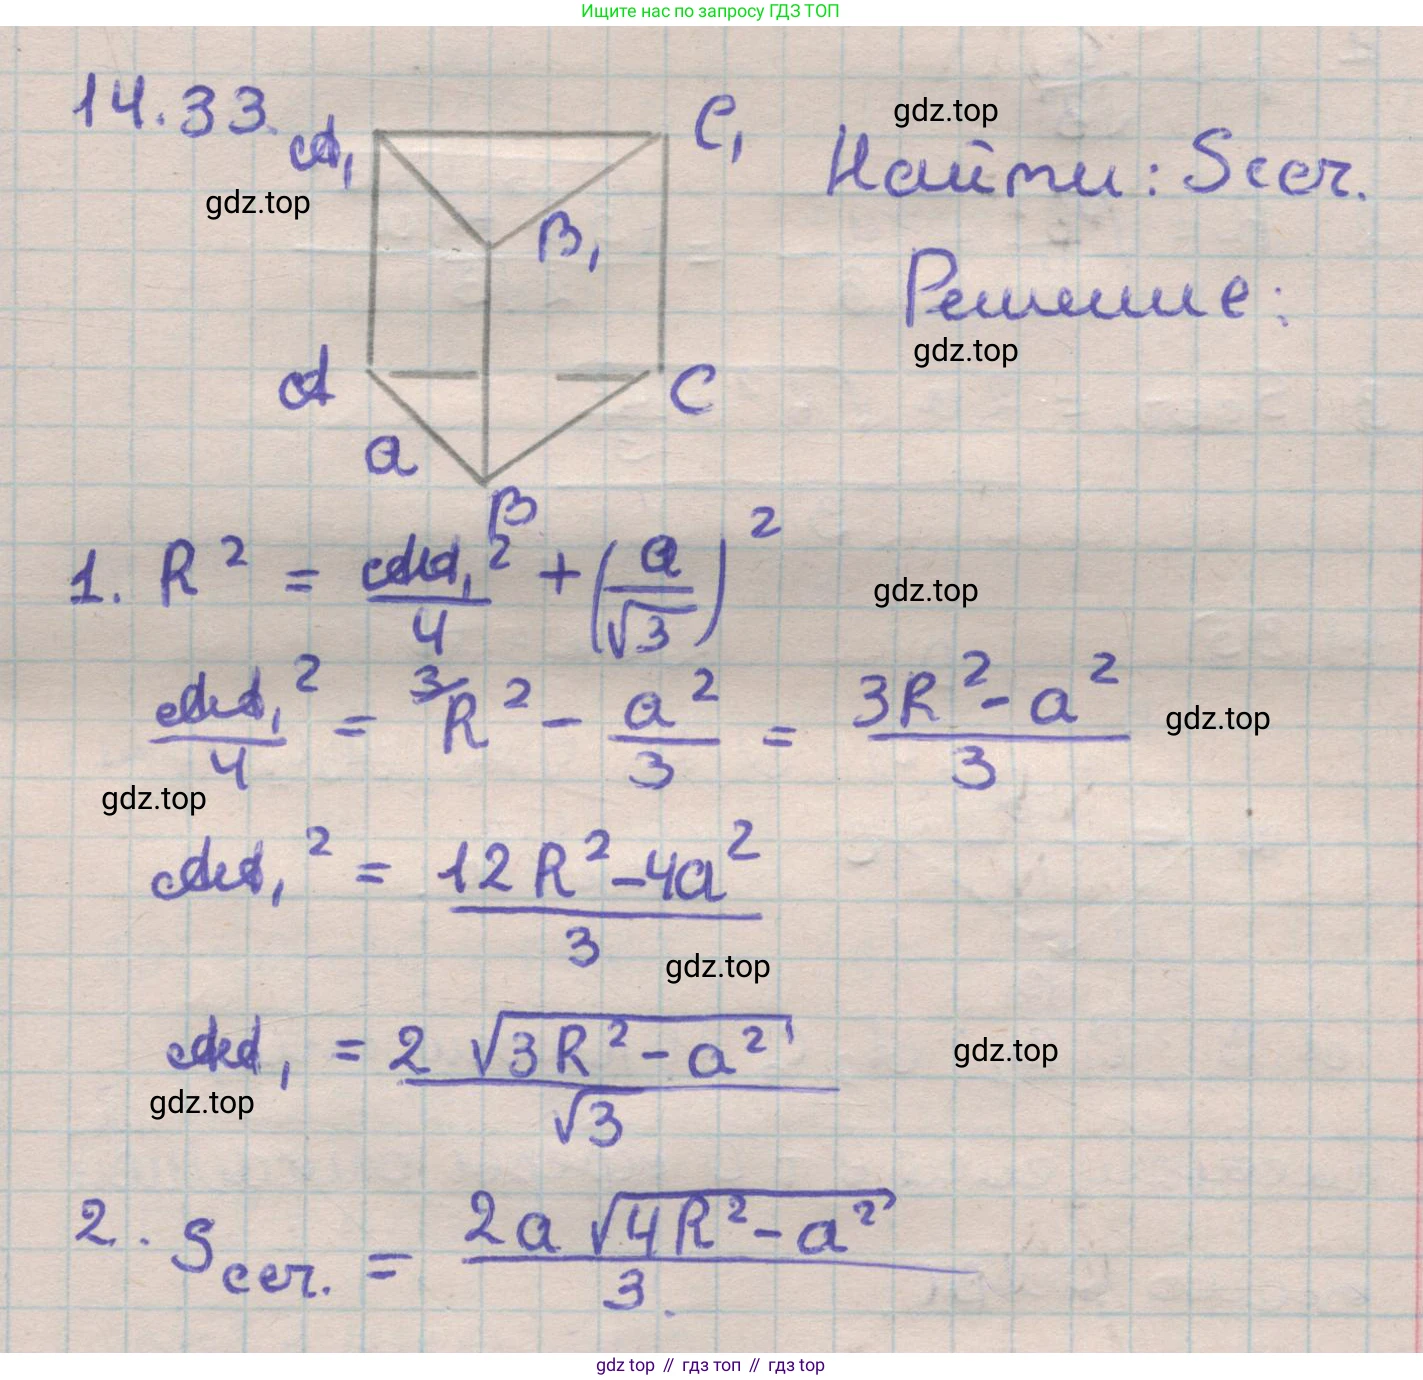 Ищите нас по запросу ГДЗ ТОП
14.33.
A₁
C₁
gdz.top
Найти: Sсеч.
gdz.top
B₁
Решение:
gdz.top
A
C
a
B
1. R² = AA₁²/4 + (a/√3)²
gdz.top
AA₁²/4 = ³/R² - a²/3 = 3R² - a²/3
gdz.top
gdz.top
AA₁² = 12R² - 4a²/3
gdz.top
AA₁ = 2√3R² - a²/√3
gdz.top
gdz.top
2. Sсеч. = 2a√4R² - a²/3.
gdz top // гдз топ // гдз top